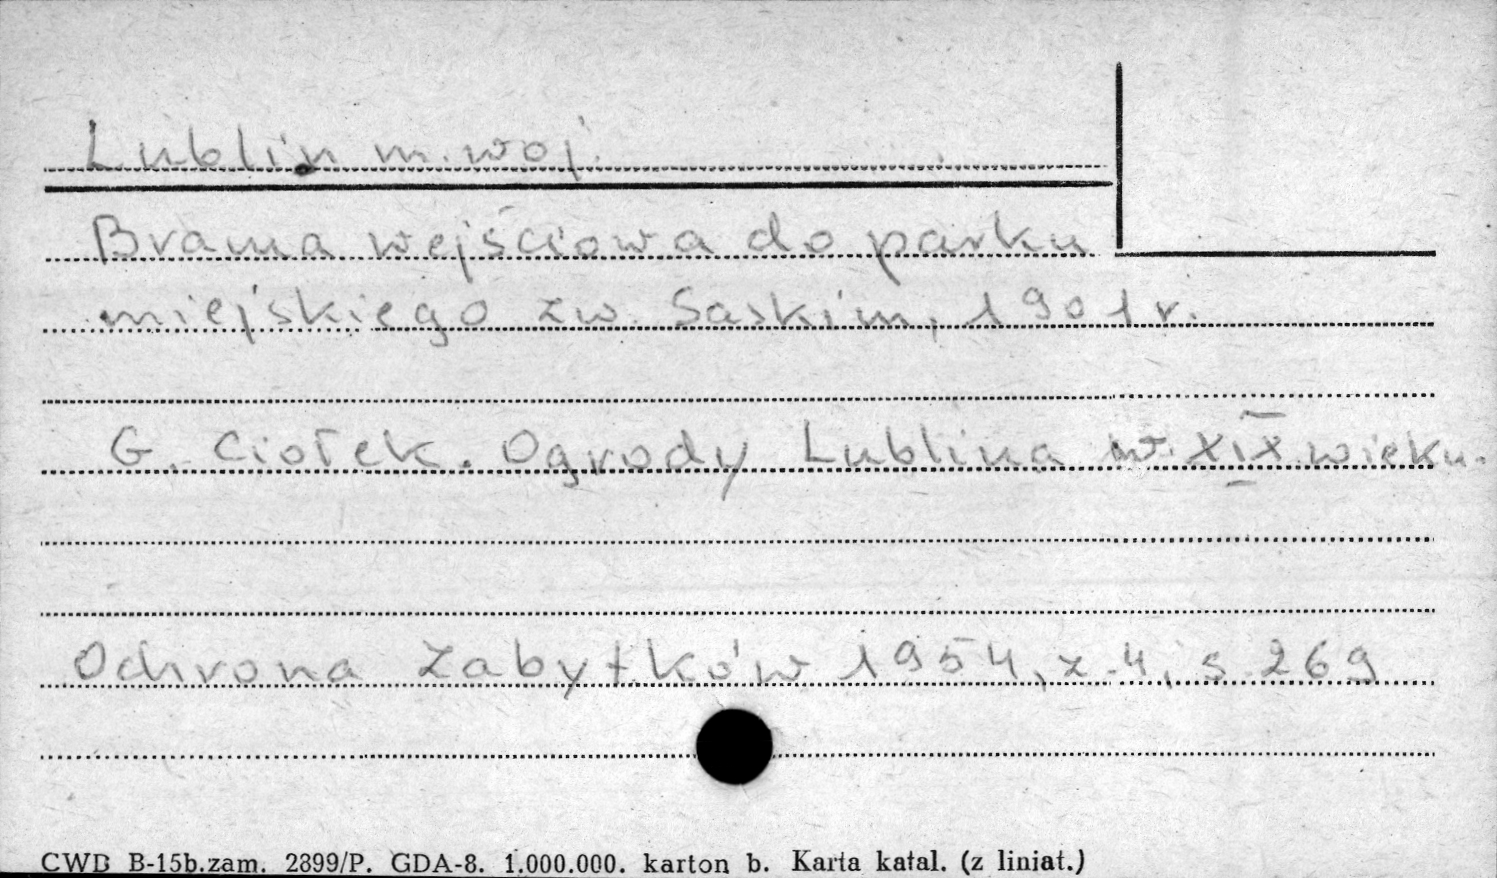 Lublin m. woj.
Brama wejściowa do parku
miejskiego zw. Saskim, 1901 r.
G. Ciołek. Ogrody Lublina w XIX wieku.
Ochrona Zabytków 1954, z. 4, s 269
CWD B-15b.zam. 2899/P. GDA-8. 1.000.000. karton b. Karta katal. (z liniat.)